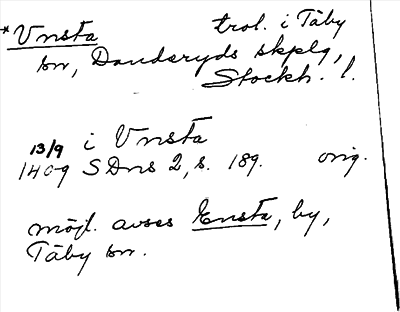 *Vnsta trol. i Täby
sn, Danderyds skplg,
Stockh. l.
13/9 i Vnsta
1409 SDns 2, s. 189. orig.
möjl. avses Ensta, by,
Täby sn.